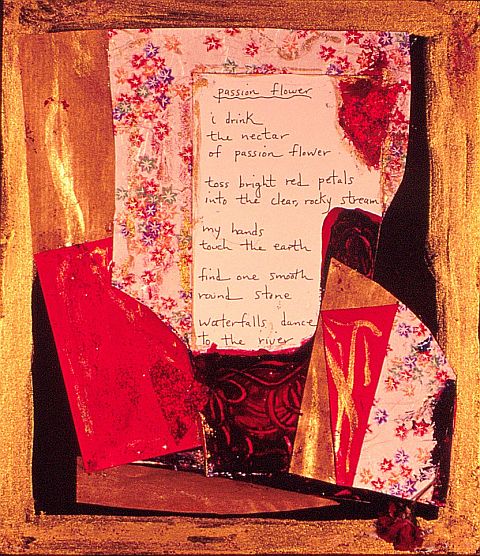 passion flower
i drink
the nectar
of passion flower
toss bright red petals
into the clear, rocky stream
my hands
touch the earth
find one smooth
round stone
waterfalls dance
to the river